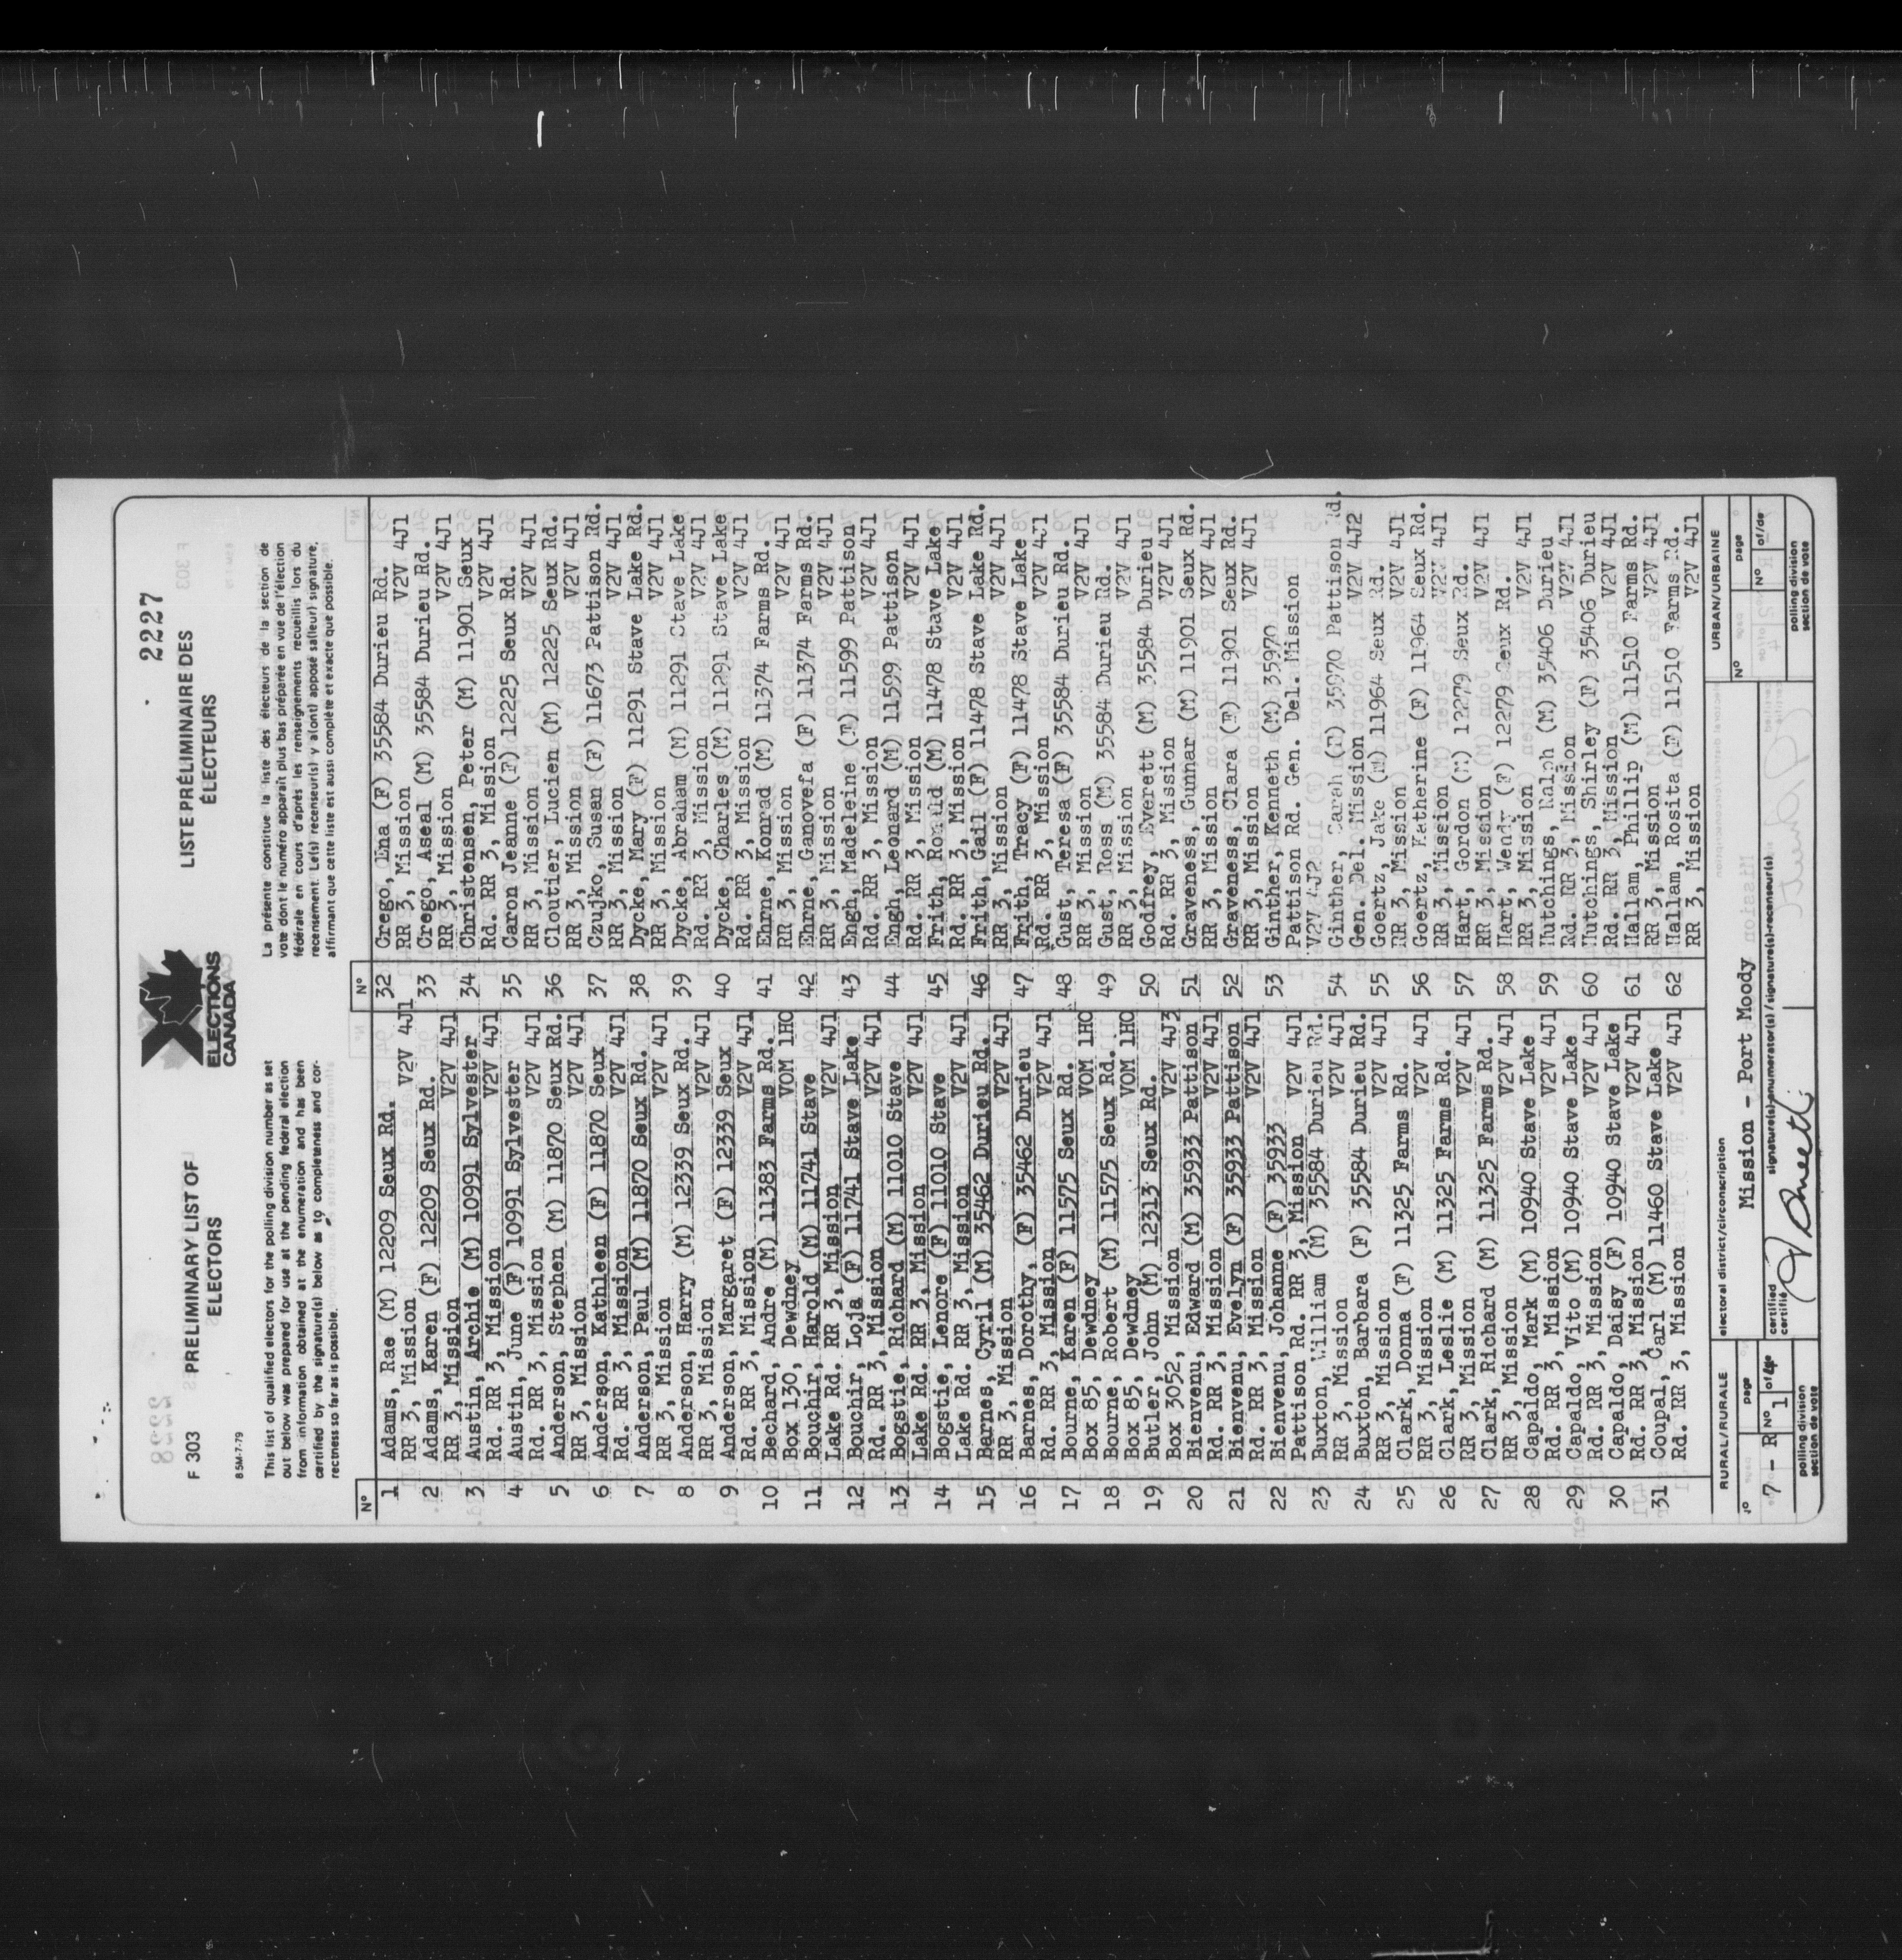 2227
F 303
PRELIMINARY LIST OF
ELECTORS
ELECTIONS
CANADA
LISTE PRÉLIMINAIRE DES
ÉLECTEURS
8 5M-7-79
This list of qualified electors for the polling division number as set
out below was prepared for use at the pending federal election
from information obtained at the enumeration and has been
certified by the signature(s) below as to completeness and cor-
rectness so far as is possible.
La présente constitue la liste des électeurs de la section de
vote dont le numéro apparaît plus bas préparée en vue de l'élection
fédérale en cours d'après les renseignements recueillis lors du
recensement. Le(s) recenseur(s) y a(ont) apposé sa(leur) signature,
affirmant que cette liste est aussi complète et exacte que possible.
Nº
1 Adams, Rae (M) 12209 Seux Rd.
RR 3, Mission V2V 4J1
2 Adams, Karen (F) 12209 Seux Rd.
RR 3, Mission V2V 4J1
3 Austin, Archie (M) 10991 Sylvester
Rd. RR 3, Mission V2V 4J1
4 Austin, June (F) 10991 Sylvester
Rd. RR 3, Mission V2V 4J1
5 Anderson, Stephen (M) 11870 Seux Rd.
RR 3, Mission V2V 4J1
6 Anderson, Kathleen (F) 11870 Seux
Rd. RR 3, Mission V2V 4J1
7 Anderson, Paul (M) 11870 Seux Rd.
RR 3, Mission V2V 4J1
8 Anderson, Harry (M) 12339 Seux Rd.
RR 3, Mission V2V 4J1
9 Anderson, Margaret (F) 12339 Seux
Rd. RR 3, Mission V2V 4J1
10 Bechard, Andre (M) 11383 Farms Rd.
Box 130, Dewdney VOM 1HO
11 Bouchir, Harold (M) 11741 Stave
Lake Rd. RR 3, Mission V2V 4J1
12 Bouchir, Loja (F) 11741 Stave Lake
Rd. RR 3, Mission V2V 4J1
13 Bogstie, Richard (M) 11010 Stave
Lake Rd. RR 3, Mission V2V 4J1
14 Bogstie, Lenore (F) 11010 Stave
Lake Rd. RR 3, Mission V2V 4J1
15 Barnes, Cyril (M) 35462 Durieu Rd.
RR 3, Mission V2V 4J1
16 Barnes, Dorothy, (F) 35462 Durieu
Rd. RR 3, Mission V2V 4J1
17 Bourne, Karen (F) 11575 Seux Rd.
Box 85, Dewdney VOM 1HO
18 Bourne, Robert (M) 11575 Seux Rd.
Box 85, Dewdney VOM 1HO
19 Butler, John (M) 12313 Seux Rd.
Box 3052, Mission V2V 4J3
20 Bienvenu, Edward (M) 35933 Pattison
Rd. RR 3, Mission V2V 4J1
21 Bienvenu, Evelyn (F) 35933 Pattison
Rd. RR 3, Mission V2V 4J1
22 Bienvenu, Johanne (F) 35933
Pattison Rd. RR 3, Mission V2V 4J1
23 Buxton, William (M) 35584 Durieu Rd.
RR 3, Mission V2V 4J1
24 Buxton, Barbara (F) 35584 Durieu Rd.
RR 3, Mission V2V 4J1
25 Clark, Donna (F) 11325 Farms Rd.
RR 3, Mission V2V 4J1
26 Clark, Leslie (M) 11325 Farms Rd.
RR 3, Mission V2V 4J1
27 Clark, Richard (M) 11325 Farms Rd.
RR 3, Mission V2V 4J1
28 Capaldo, Mark (M) 10940 Stave Lake
Rd. RR 3, Mission V2V 4J1
29 Capaldo, Vito (M) 10940 Stave Lake
Rd. RR 3, Mission V2V 4J1
30 Capaldo, Daisy (F) 10940 Stave Lake
Rd. RR 3, Mission V2V 4J1
31 Coupal, Carl (M) 11460 Stave Lake
Rd. RR 3, Mission V2V 4J1
Nº
32 Crego, Ena (F) 35584 Durieu Rd.
RR 3, Mission V2V 4J1
33 Crego, Aseal (M) 35584 Durieu Rd.
RR 3, Mission V2V 4J1
34 Christensen, Peter (M) 11901 Seux
Rd. RR 3, Mission V2V 4J1
35 Caron Jeanne (F) 12225 Seux Rd.
RR 3, Mission V2V 4J1
36 Cloutier, Lucien (M) 12225 Seux Rd.
RR 3, Mission V2V 4J1
37 Czujko, Susan (F) 11673 Pattison Rd.
RR 3, Mission V2V 4J1
38 Dycke, Mary (F) 11291 Stave Lake Rd.
RR 3, Mission V2V 4J1
39 Dycke, Abraham (M) 11291 Stave Lake
Rd. RR 3, Mission V2V 4J1
40 Dycke, Charles (M) 11291 Stave Lake
Rd. RR 3, Mission V2V 4J1
41 Ehrne, Konrad (M) 11374 Farms Rd.
RR 3, Mission V2V 4J1
42 Ehrne, Ganovefa (F) 11374 Farms Rd.
RR 3, Mission V2V 4J1
43 Engh, Madeleine (F) 11599 Pattison
Rd. RR 3, Mission V2V 4J1
44 Engh, Leonard (M) 11599 Pattison
Rd. RR 3, Mission V2V 4J1
45 Frith, Ronald (M) 11478 Stave Lake
Rd. RR 3, Mission V2V 4J1
46 Frith, Gail (F) 11478 Stave Lake Rd.
RR 3, Mission V2V 4J1
47 Frith, Tracy (F) 11478 Stave Lake
Rd. RR 3, Mission V2V 4J1
48 Gust, Teresa (F) 35584 Durieu Rd.
RR 3, Mission V2V 4J1
49 Gust, Ross (M) 35584 Durieu Rd.
RR 3, Mission V2V 4J1
50 Godfrey, Everett (M) 35584 Durieu
Rd. RR 3, Mission V2V 4J1
51 Graveness, Gunnar (M) 11901 Seux Rd.
RR 3, Mission V2V 4J1
52 Graveness, Clara (F) 11901 Seux Rd.
RR 3, Mission V2V 4J1
53 Ginther, Kenneth (M) 35970
Pattison Rd. Gen. Del. Mission
V2V 4J2
54 Ginther, Sarah (F) 35970 Pattison Rd.
Gen. Del. Mission V2V 4J2
55 Goertz, Jake (M) 11964 Seux Rd.
RR 3, Mission V2V 4J1
56 Goertz, Katherine (F) 11964 Seux Rd.
RR 3, Mission V2V 4J1
57 Hart, Gordon (M) 12279 Seux Rd.
RR 3, Mission V2V 4J1
58 Hart, Wendy (F) 12279 Seux Rd.
RR 3, Mission V2V 4J1
59 Hutchings, Ralph (M) 35406 Durieu
Rd. RR 3, Mission V2V 4J1
60 Hutchings, Shirley (F) 35406 Durieu
Rd. RR 3, Mission V2V 4J1
61 Hallam, Phillip (M) 11510 Farms Rd.
RR 3, Mission V2V 4J1
62 Hallam, Rosita (F) 11510 Farms Rd.
RR 3, Mission V2V 4J1
RURAL/RURALE
Nº page
7 - R Nº 1 of/de 4
polling division
section de vote
electoral district/circonscription
Mission - Port Moody
certified
certifié
signature(s)-enumerator(s)/signature(s)-recenseur(s)
URBAN/URBAINE
Nº page
Nº of/de
polling division
section de vote